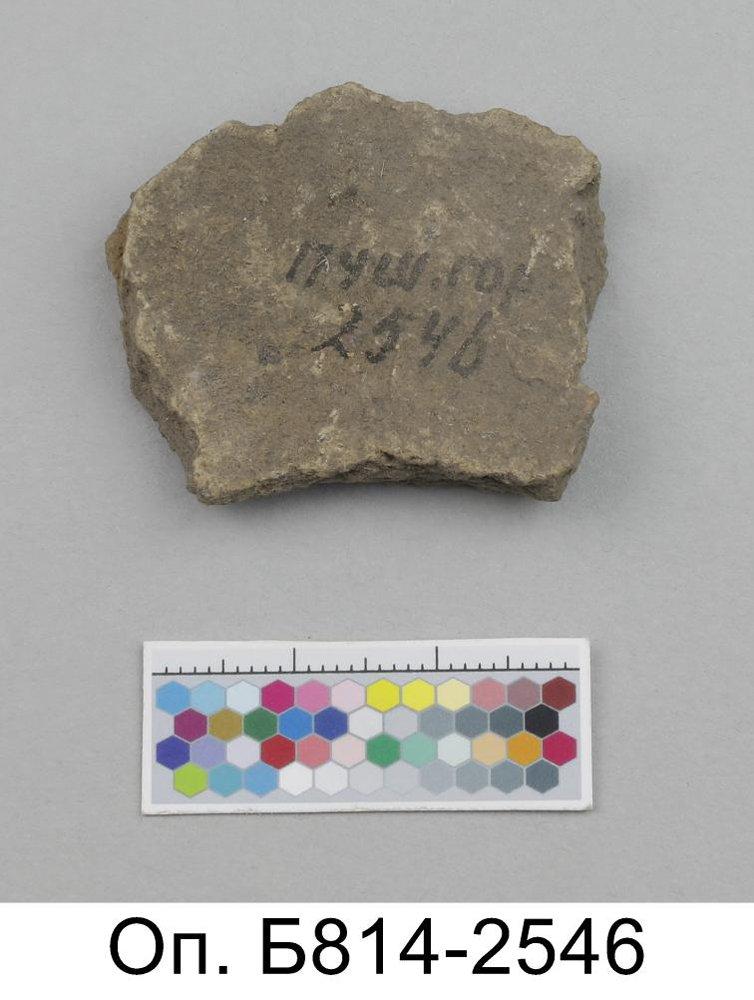 Пуш. гор.
2546
Оп. Б814-2546